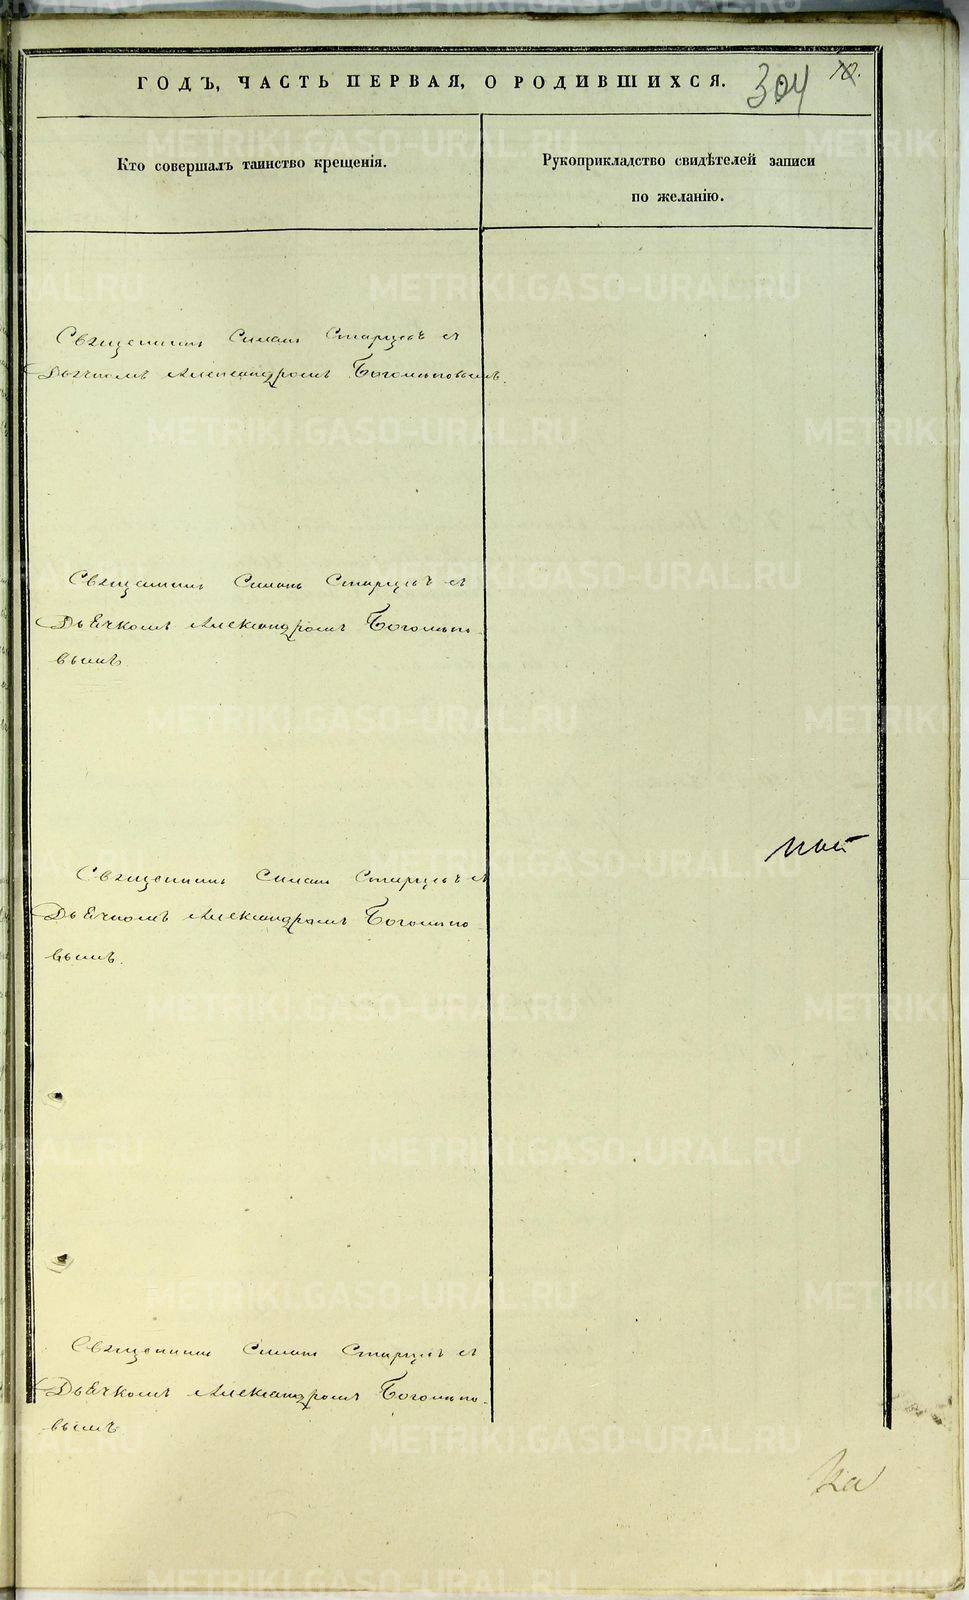 ГОДЪ, ЧАСТЬ ПЕРВАЯ, О РОДИВШИХСЯ.
304
10.
Кто совершалъ таинство крещенія.
Рукоприкладство свидѣтелей записи
по желанію.
Священникъ Симонъ Старцевъ съ
Дьячкомъ Александромъ Богомоловымъ.
Священникъ Симонъ Старцевъ съ
Дьячкомъ Александромъ Богомоло-
вымъ
Священникъ Симонъ Старцевъ съ
Дьячкомъ Александромъ Богомоло
вымъ.
Священникъ Симонъ Старцевъ съ
Дьячкомъ Александромъ Богомоло-
вымъ
METRIKI.GASO-URAL.RU